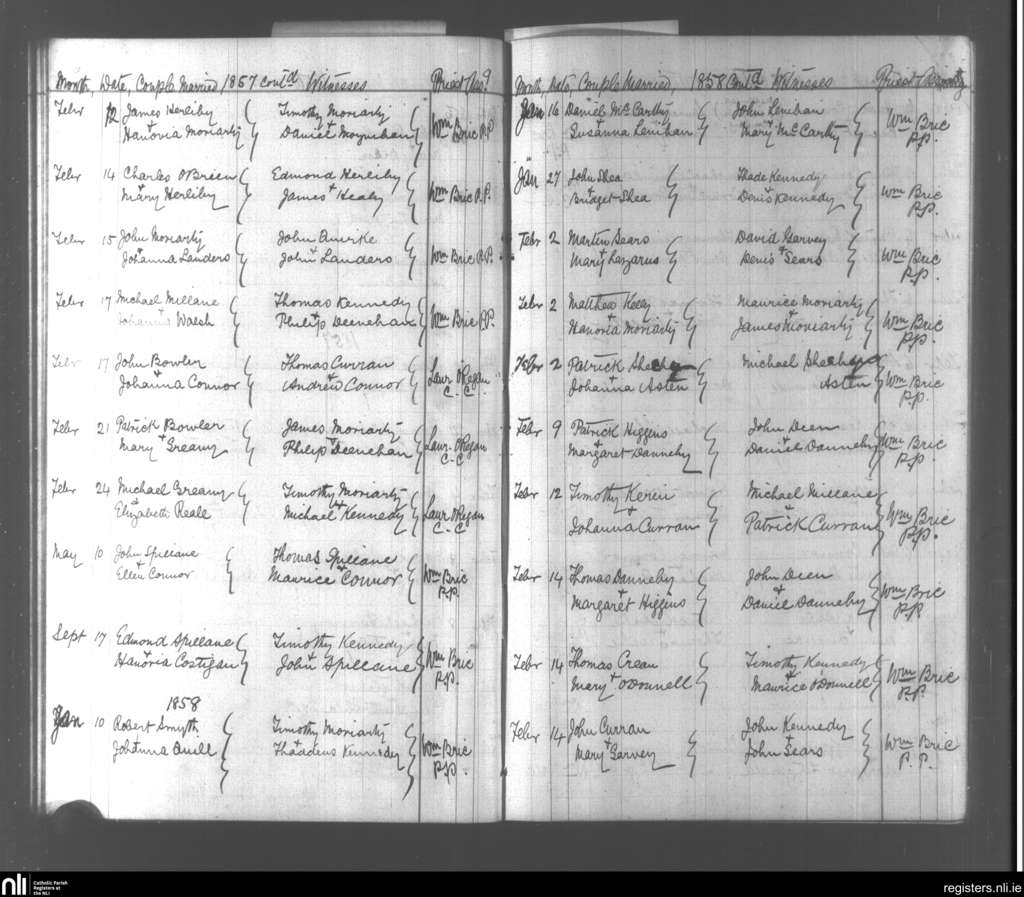 Month, Date, Couple Married, 1857 Contd Witnesses
Febr 12 James Herlihy Timothy Moriarty
+ Hanoria Moriarty Daniel Moynehan Wm Bric P.P.
Febr 14 Charles O'Brien Edmond Herlihy
+ Mary Herlihy James + Healy Wm Bric P.P.
Febr 15 John Moriarty John Quirke
Johanna Landers John + Landers Wm Bric P.P.
Febr 17 Michael Millane Thomas Kennedy
Johanna Walsh Philip Deenehan Wm Bric P.P.
Febr 17 John Bowler Thomas Curran
Johanna Connor Andrew Connor Laur. O'Regan
C.C.
Febr 21 Patrick Bowler James Moriarty
Mary Greany Philip Deenehan Laur. O'Regan
C-C
Febr 24 Michael Greany Timothy Moriarty
Elizabeth Reale Michael Kennedy Laur O'Regan
C-C
May 10 John Spillane Thomas Spillane
Ellen Connor Maurice Connor Wm Bric
P.P.
Sept 17 Edmond Spillane Timothy Kennedy
Hanoria Costigan John Spillane Wm Bric
P.P.
1858
Jan 10 Robert Smyth Timothy Moriarty
Johanna Quill Thaddeus Kennedy Wm Bric
P.P.
Month, Date, Couple Married, 1858 Contd Witnesses
Jan 16 Daniel McCarthy John Lenihan
Susanna Lenihan Mary McCarthy Wm Bric
P.P.
Jan 27 John Shea Thade Kennedy
Bridget Shea Denis Kennedy Wm Bric
P.P.
Febr 2 Martin Sears David Garvey
Mary Lazarus Denis + Sears Wm Bric
P.P.
Febr 2 Matthew Kelly Maurice Moriarty
Hanoria Moriarty James Moriarty Wm Bric
P.P.
Febr 2 Patrick Sheehy Michael Sheehy
Johanna Astin Astin Wm Bric
P.P.
Febr 9 Patrick Higgins John Deen
Margaret Dannehy Daniel Dannehy Wm Bric
P.P.
Febr 12 Timothy Kerin Michael Millane
+ +
Johanna Curran Patrick Curran Wm Bric
P.P.
Febr 14 Thomas Dannehy John Deen
+ +
Margaret Higgins Daniel Dannehy Wm Bric
P.P.
Febr 14 Thomas Crean Timothy Kennedy
Mary + O'Donnell Maurice O'Donnell Wm Bric
P.P.
Febr 14 John Curran John Kennedy
Mary Garvey John Sears Wm Bric
P.P.
nli
Catholic Parish
Registers at
the NLI
registers.nli.ie